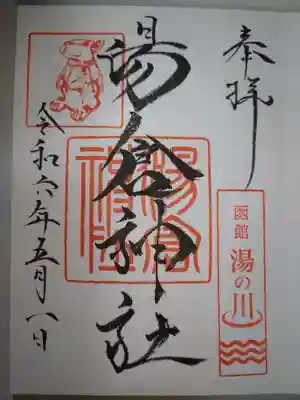 奉拝
函館 湯の川
湯倉神社
令和六年五月八日